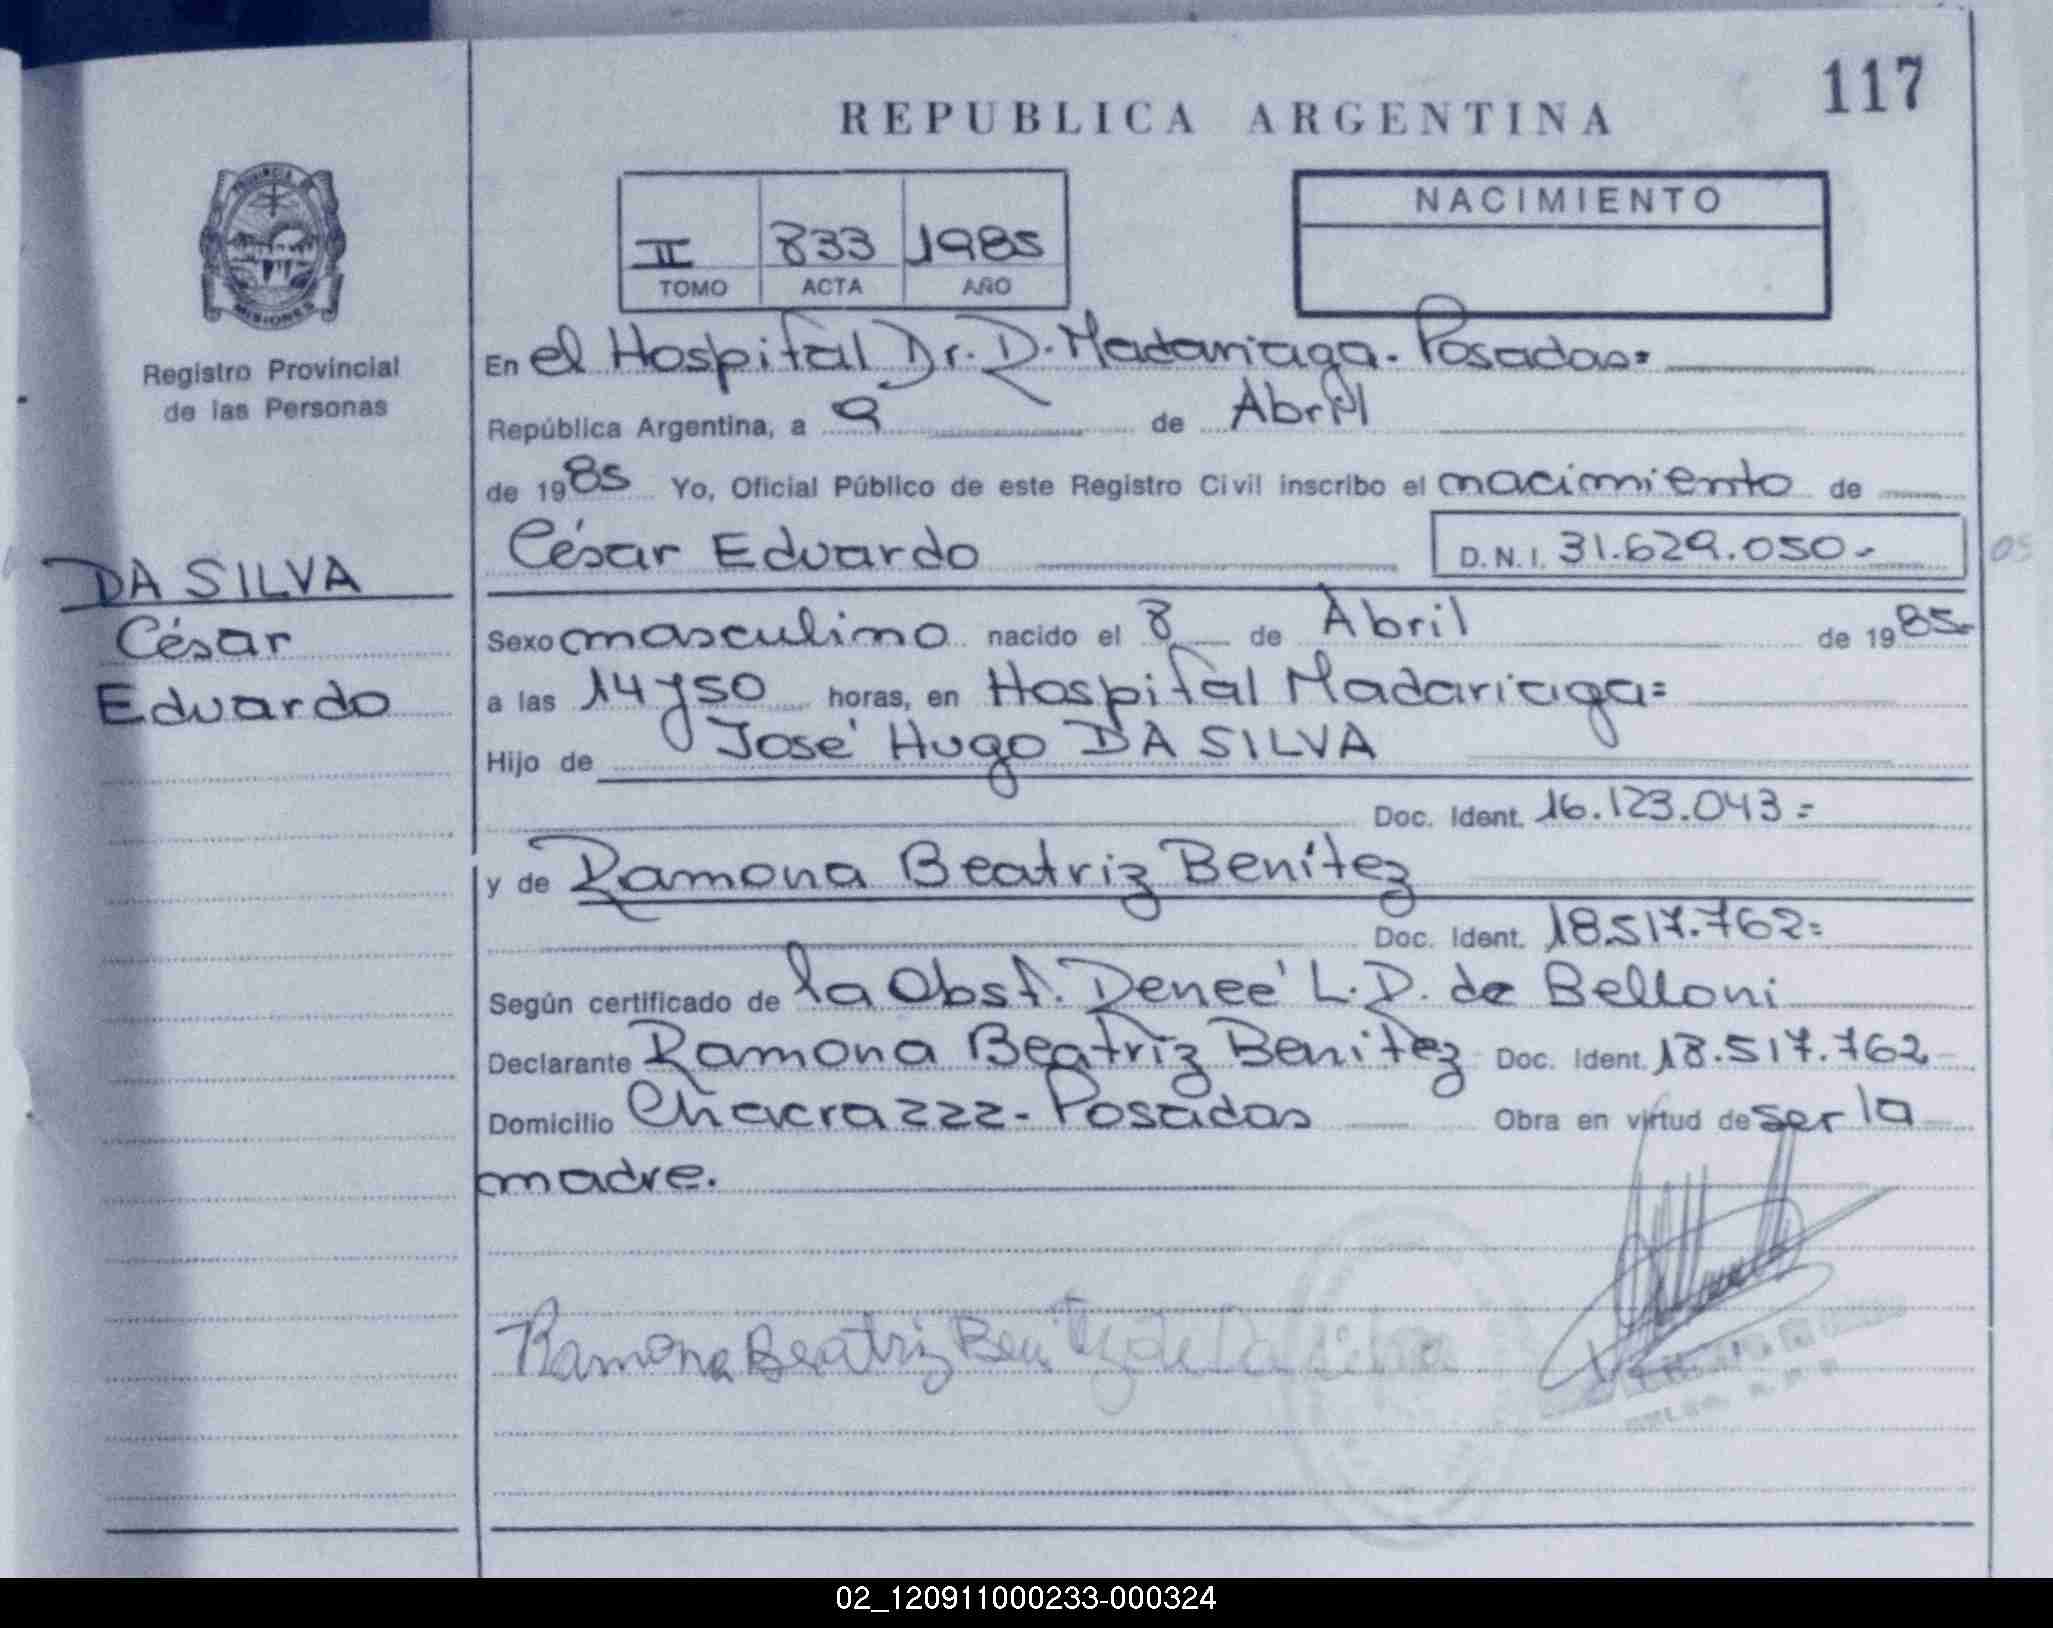 117
REPUBLICA ARGENTINA
NACIMIENTO
II 833 1985
TOMO ACTA AÑO
PROVINCIA DE
MISIONES
Registro Provincial
de las Personas
En el Hospital Dr. R. Madariaga. Posadas=
República Argentina, a 9 de Abril
de 1985 Yo, Oficial Público de este Registro Civil inscribo el nacimiento de
César Eduardo D.N.I. 31.629.050.-
DA SILVA
César
Eduardo
Sexo masculino nacido el 8 de Abril de 1985-
a las 14 y 50 horas, en Hospital Madariaga=
Hijo de José Hugo DA SILVA
Doc. Ident. 16.123.043=
y de Ramona Beatriz Benítez
Doc. Ident. 18.517.762=
Según certificado de la Obst. Reneé L. D. de Belloni
Declarante Ramona Beatriz Benitez Doc. Ident. 18.517.762
Domicilio Chacra 222- Posadas Obra en virtud de ser la
madre.
Ramona Beatriz Benitez de Da Silva
02_120911000233-000324